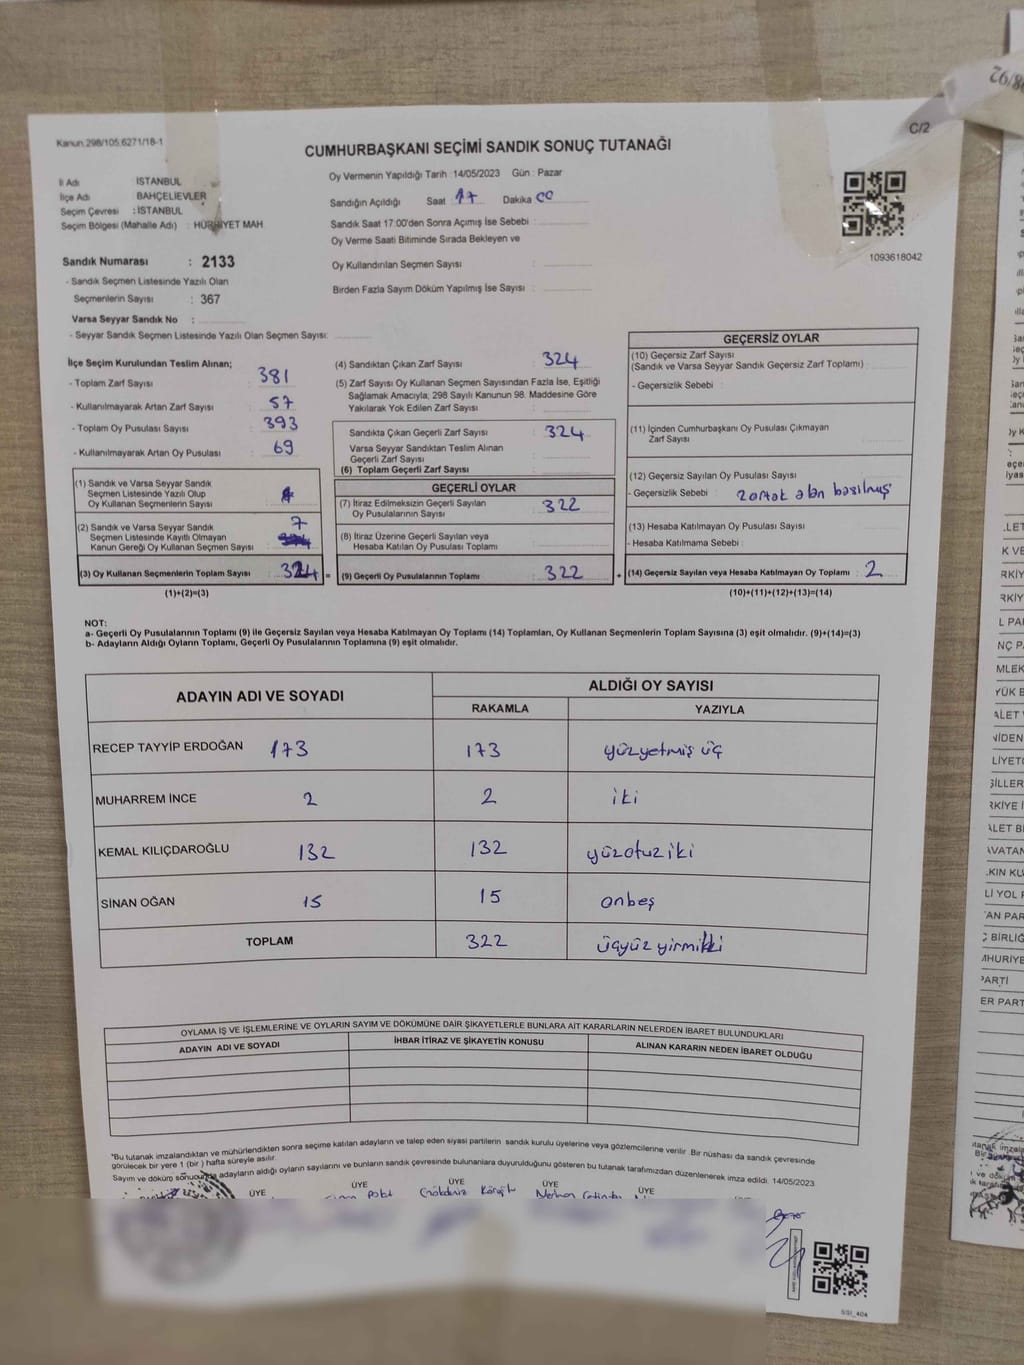 Kanun:298/105,6271/18-1
C/2
CUMHURBAŞKANI SEÇİMİ SANDIK SONUÇ TUTANAĞI
İl Adı İSTANBUL
İlçe Adı BAHÇELİEVLER
Seçim Çevresi : İSTANBUL
Seçim Bölgesi (Mahalle Adı) : HÜRRİYET MAH
Oy Vermenin Yapıldığı Tarih :14/05/2023 Gün : Pazar
Sandığın Açıldığı Saat 17 Dakika 00
Sandık Saat 17:00'den Sonra Açımış İse Sebebi :
Oy Verme Saati Bitiminde Sırada Bekleyen ve
Oy Kullandırılan Seçmen Sayısı :
Birden Fazla Sayım Döküm Yapılmış İse Sayısı :
1093618042
Sandık Numarası : 2133
- Sandık Seçmen Listesinde Yazılı Olan
Seçmenlerin Sayısı : 367
Varsa Seyyar Sandık No :
- Seyyar Sandık Seçmen Listesinde Yazılı Olan Seçmen Sayısı:
İlçe Seçim Kurulundan Teslim Alınan;
- Toplam Zarf Sayısı : 381
- Kullanılmayarak Artan Zarf Sayısı : 57
- Toplam Oy Pusulası Sayısı : 393
- Kullanılmayarak Artan Oy Pusulası : 69
(1) Sandık ve Varsa Seyyar Sandık
Seçmen Listesinde Yazılı Olup
Oy Kullanan Seçmenlerin Sayısı :
(2) Sandık ve Varsa Seyyar Sandık
Seçmen Listesinde Kayıtlı Olmayan
Kanun Gereği Oy Kullanan Seçmen Sayısı : 7
(3) Oy Kullanan Seçmenlerin Toplam Sayısı : 324
(1)+(2)=(3)
(4) Sandıktan Çıkan Zarf Sayısı : 324
(5) Zarf Sayısı Oy Kullanan Seçmen Sayısından Fazla İse, Eşitliği
Sağlamak Amacıyla; 298 Sayılı Kanunun 98. Maddesine Göre
Yakılarak Yok Edilen Zarf Sayısı :
Sandıkta Çıkan Geçerli Zarf Sayısı : 324
Varsa Seyyar Sandıktan Teslim Alınan
Geçerli Zarf Sayısı :
(6) Toplam Geçerli Zarf Sayısı :
GEÇERLİ OYLAR
(7) İtiraz Edilmeksizin Geçerli Sayılan
Oy Pusulalarının Sayısı : 322
(8) İtiraz Üzerine Geçerli Sayılan veya
Hesaba Katılan Oy Pusulası Toplamı :
= (9) Geçerli Oy Pusulalarının Toplamı : 322
GEÇERSİZ OYLAR
(10) Geçersiz Zarf Sayısı
(Sandık ve Varsa Seyyar Sandık Geçersiz Zarf Toplamı) :
- Geçersizlik Sebebi :
(11) İçinden Cumhurbaşkanı Oy Pusulası Çıkmayan
Zarf Sayısı :
(12) Geçersiz Sayılan Oy Pusulası Sayısı :
- Geçersizlik Sebebi : 2 ortak alan basılmış
(13) Hesaba Katılmayan Oy Pusulası Sayısı :
- Hesaba Katılmama Sebebi :
+ (14) Geçersiz Sayılan veya Hesaba Katılmayan Oy Toplamı : 2
(10)+(11)+(12)+(13)=(14)
NOT:
a- Geçerli Oy Pusulalarının Toplamı (9) ile Geçersiz Sayılan veya Hesaba Katılmayan Oy Toplamı (14) Toplamları, Oy Kullanan Seçmenlerin Toplam Sayısına (3) eşit olmalıdır. (9)+(14)=(3)
b- Adayların Aldığı Oyların Toplamı, Geçerli Oy Pusulalarının Toplamına (9) eşit olmalıdır.
ADAYIN ADI VE SOYADI
ALDIĞI OY SAYISI
RAKAMLA YAZIYLA
RECEP TAYYİP ERDOĞAN 173 173 yüzyetmiş üç
MUHARREM İNCE 2 2 iki
KEMAL KILIÇDAROĞLU 132 132 yüzotuz iki
SİNAN OĞAN 15 15 onbeş
TOPLAM 322 üçyüz yirmiiki
OYLAMA İŞ VE İŞLEMLERİNE VE OYLARIN SAYIM VE DÖKÜMÜNE DAİR ŞİKAYETLERLE BUNLARA AİT KARARLARIN NELERDEN İBARET BULUNDUKLARI
ADAYIN ADI VE SOYADI İHBAR İTİRAZ VE ŞİKAYETİN KONUSU ALINAN KARARIN NEDEN İBARET OLDUĞU
*Bu tutanak imzalandıktan ve mühürlendikten sonra seçime katılan adayların ve talep eden siyasi partilerin sandık kurulu üyelerine veya gözlemcilerine verilir. Bir nüshası da sandık çevresinde
görülecek bir yere 1 (bir ) hafta süreyle asılır.
Sayım ve döküm sonucunda adayların aldığı oyların sayılarını ve bunların sandık çevresinde bulunanlara duyurulduğunu gösteren bu tutanak tarafımızdan düzenlenerek imza edildi. 14/05/2023
ÜYE ÜYE ÜYE ÜYE ÜYE
SSI_404